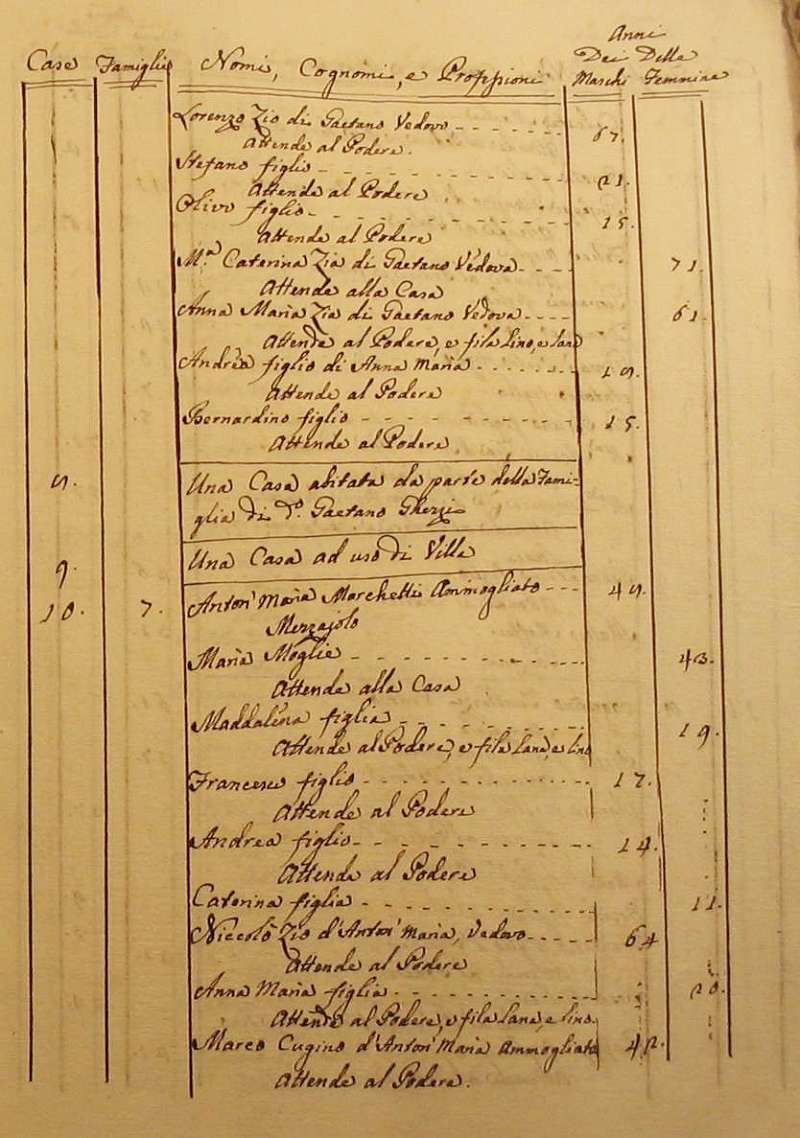 Anni
Case Famiglie Nomi, Cognomi, e Professioni Dei Maschi Delle Femmine
Lorenzo Zio di Gaetano Vedovo 67.
Attende al Podere.
Stefano figlio 21.
Attende al Podere
Olivo figlio 15.
Attende al Podere
M.ª Caterina Zia di Gaetano Vedova 71.
Attende alla Casa
Anna Maria Zia di Gaetano Vedova 61.
Attende al Podere, e fila Lino, e Lana
Andrea figlio di Anna Maria 19.
Attende al Podere
Bernardino figlio 15.
Attende al Podere
Una Casa abitata da parte della Fami-
glia di d.º Gaetano
9. Una Casa ad uso di Villa
10. 7. Anton' Maria Marchetti Ammogliato 49.
Mezzajolo
Maria Moglie 43.
Attende alla Casa
Maddalena figlia 19.
Attende al Podere, e fila Lana, e Lino
Francesco figlio 17.
Attende al Podere
Andrea figlio 14.
Attende al Podere
Caterina figlia 11.
Niccolò Zio d'Anton' Maria, Vedovo 64
Attende al Podere
Anna Maria figlia 20.
Attende al Podere, e fila Lana, e Lino.
Marco Cugino d'Anton' Maria Ammogliato 42.
Attende al Podere.